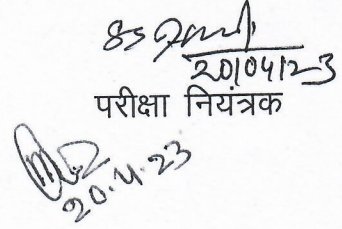 20/04/23
परीक्षा नियंत्रक
20.4.23